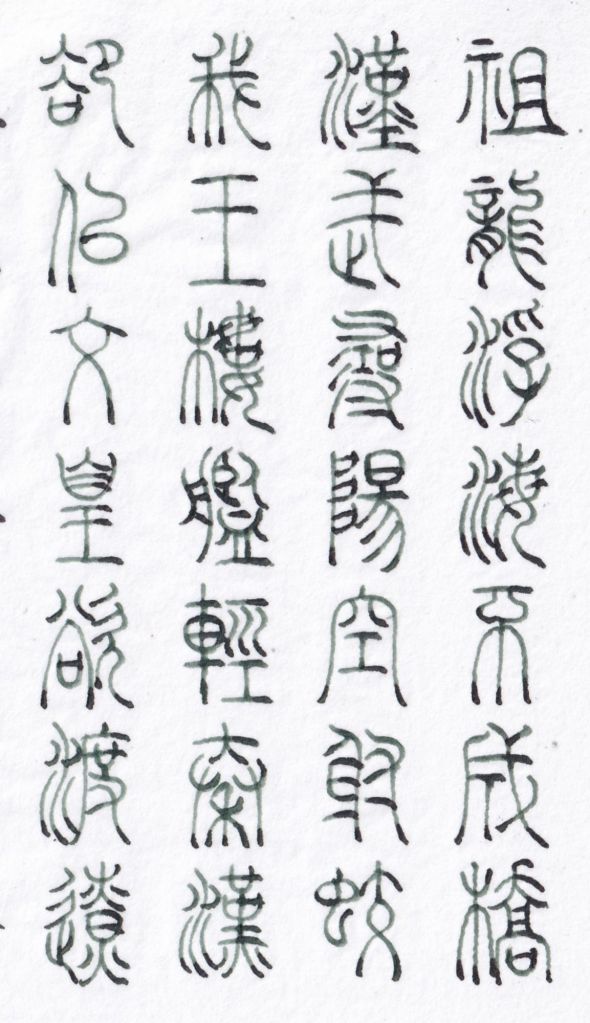 祖龍浮海不成橋
漢武尋陽空射蛟
我王樓艦輕秦漢
卻佀文皇欲渡遼